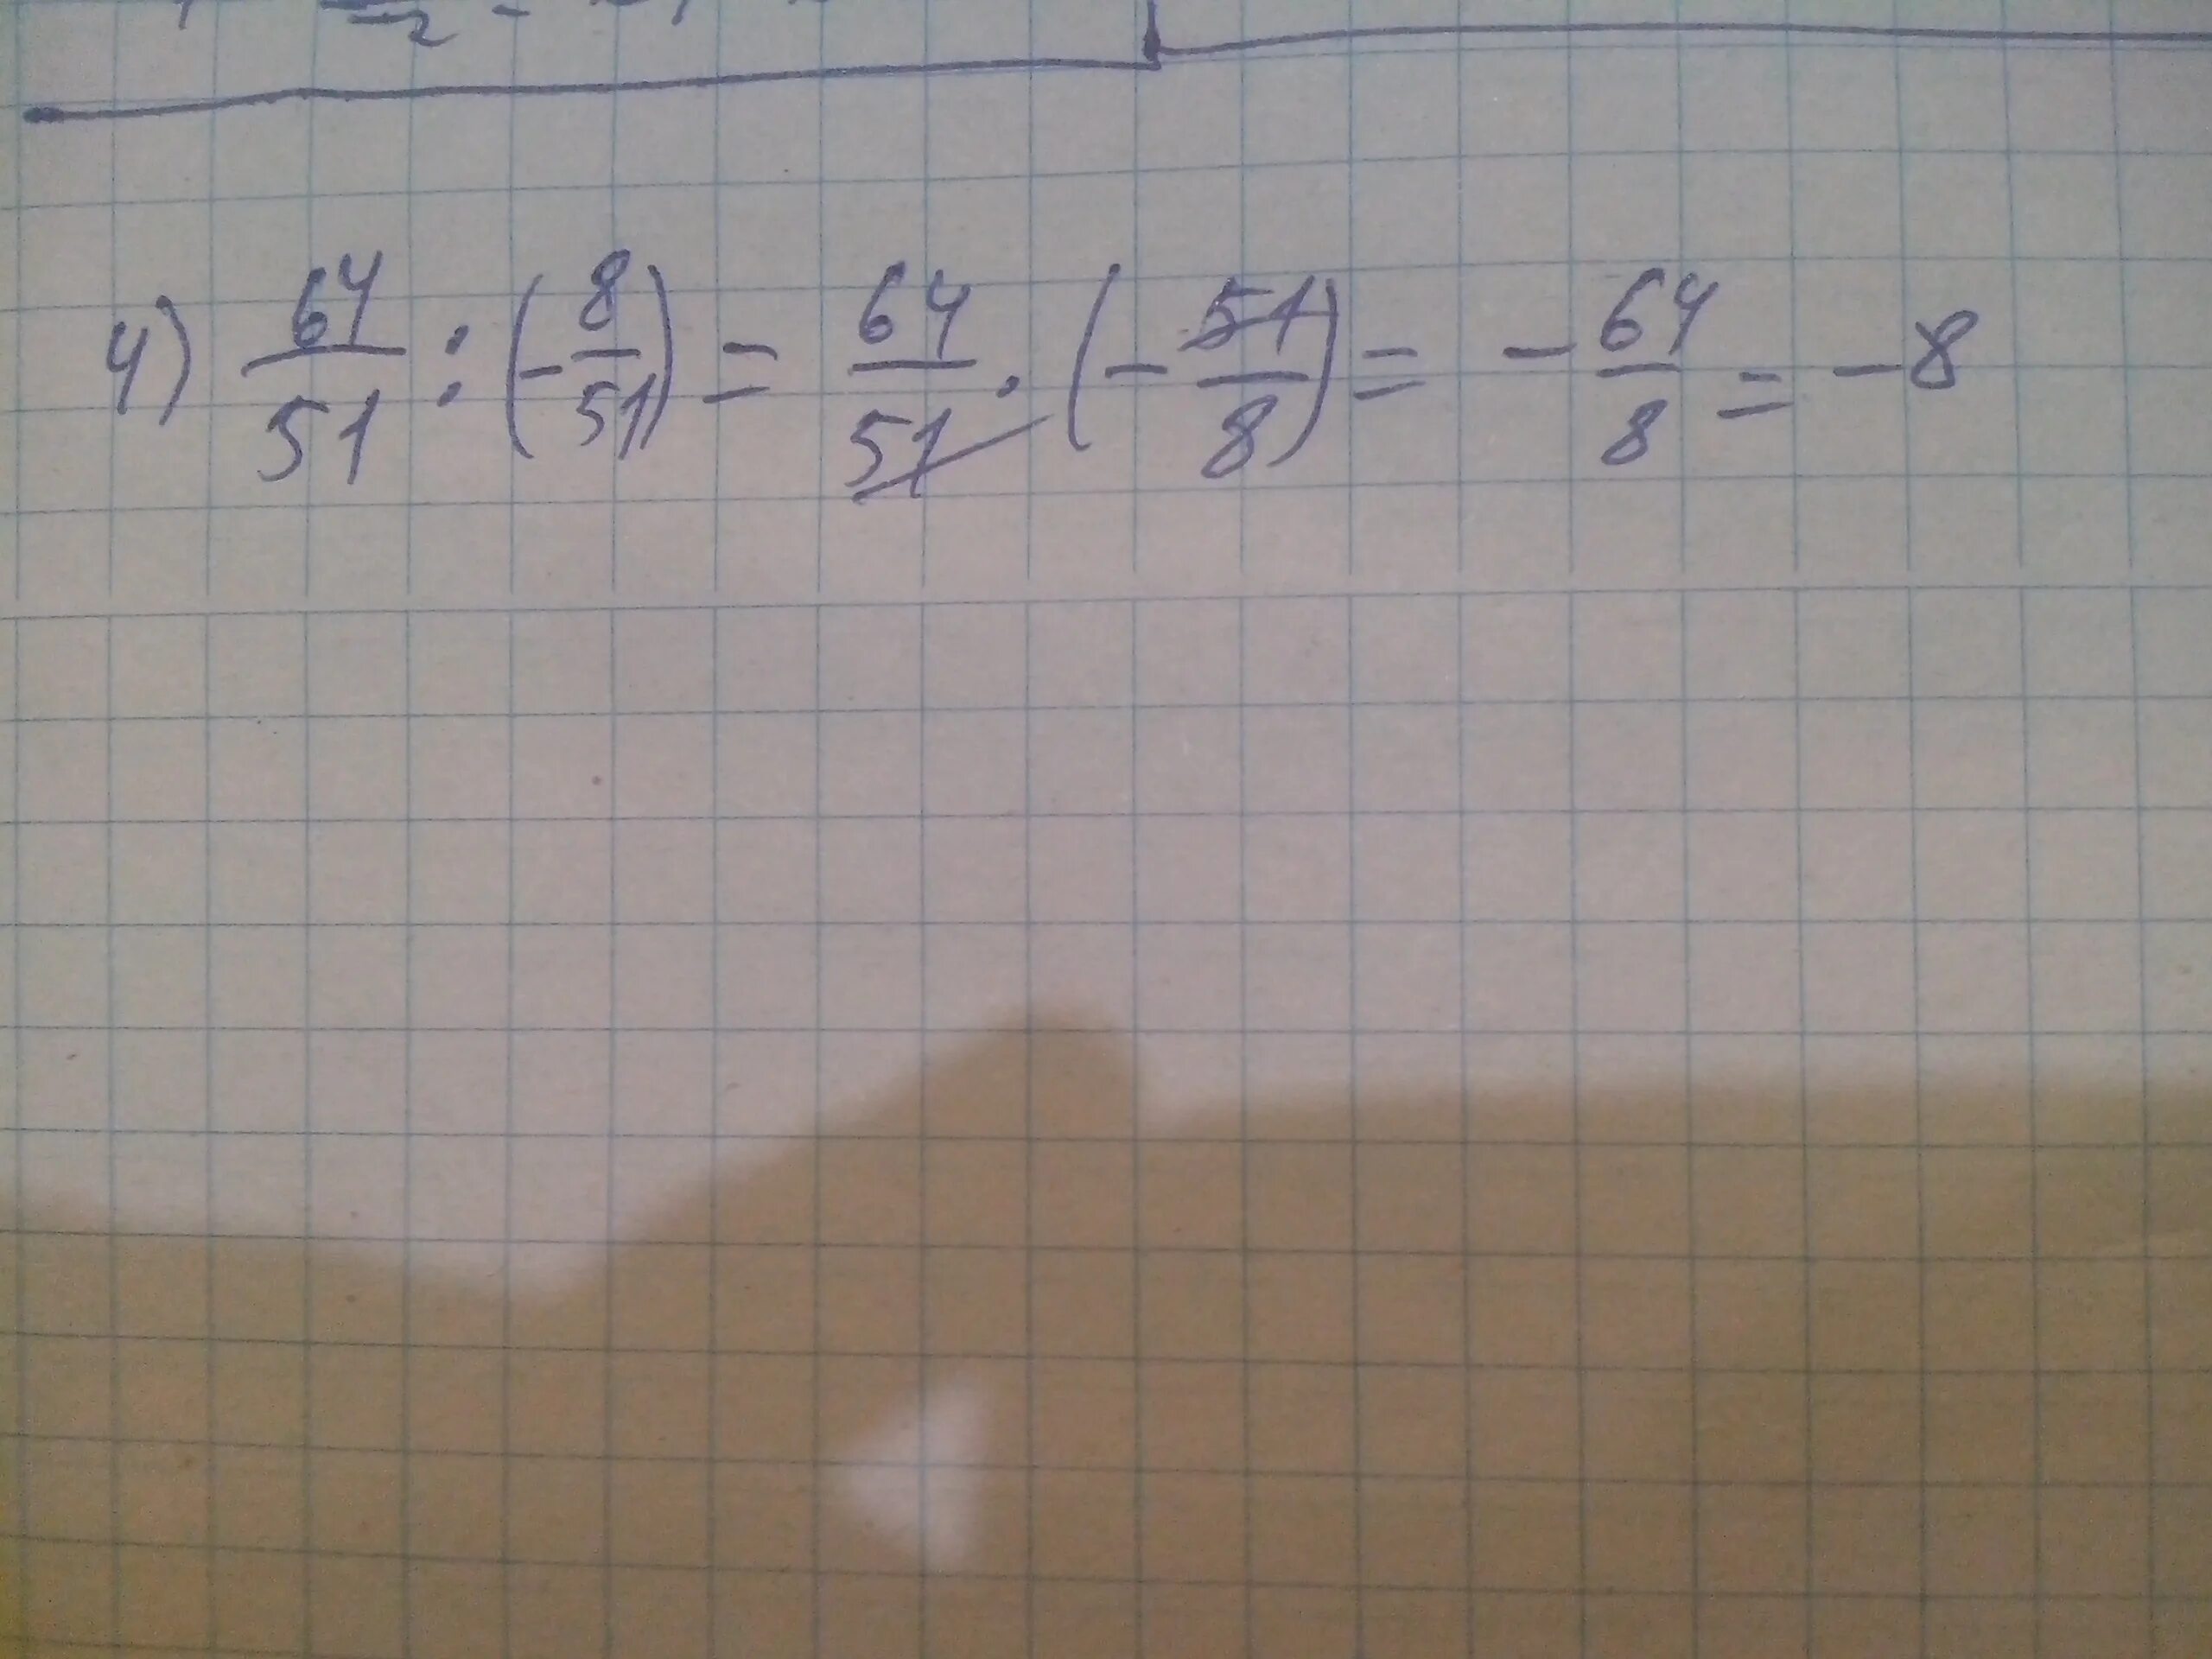 4) 64/51 : (- 8/51) = 64/51 · (- 51/8) = - 64/8 = -8